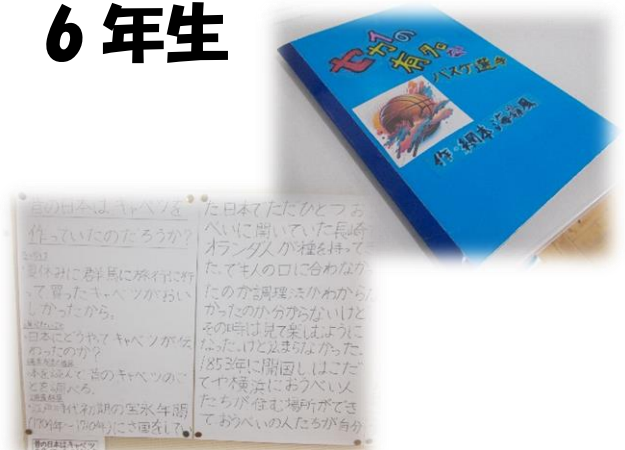 6年生
セカイの
有名な
バスケ選手
作・網本
昔の日本はキャベツを
作っていたのだろうか?
・夏休みに群馬に旅行に行
って買ったキャベツがおい
しかったから。
・日本にどうやってキャベツが伝
わったのか?
・本を読んで昔のキャベツのこ
とを調べる。
・江戸時代初期の宝永年間
(1704年~1710年)にさ国をしてい
た日本でたたひとつお
うべいに開いていた長崎
オランダ人が種を持ってき
た。でも人の口に合わなか
たのか調理法がわからな
かったのか分からないけど
その時は見て楽しむように
なった。けど広まらなかった。
1853年に開国し、はこだ
てや横浜におうべい人
たちが住む場所ができ
ておうべいの人たちが自分
昔の日本はキャベツ